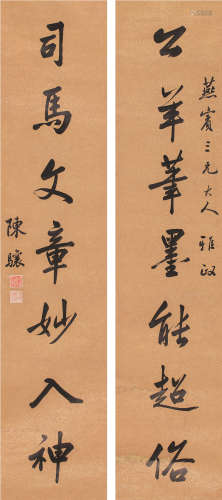 燕賓三兄大人 雅政
公羊筆墨能超俗
司馬文章妙入神
陳驤